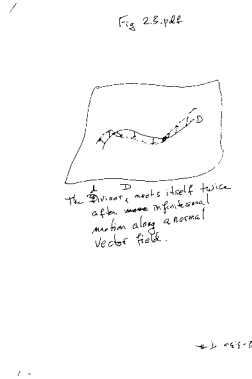 Fig 2.3.pdf
D
The divisor D meets itself twice
after infinitesimal
motion along a normal
vector field.